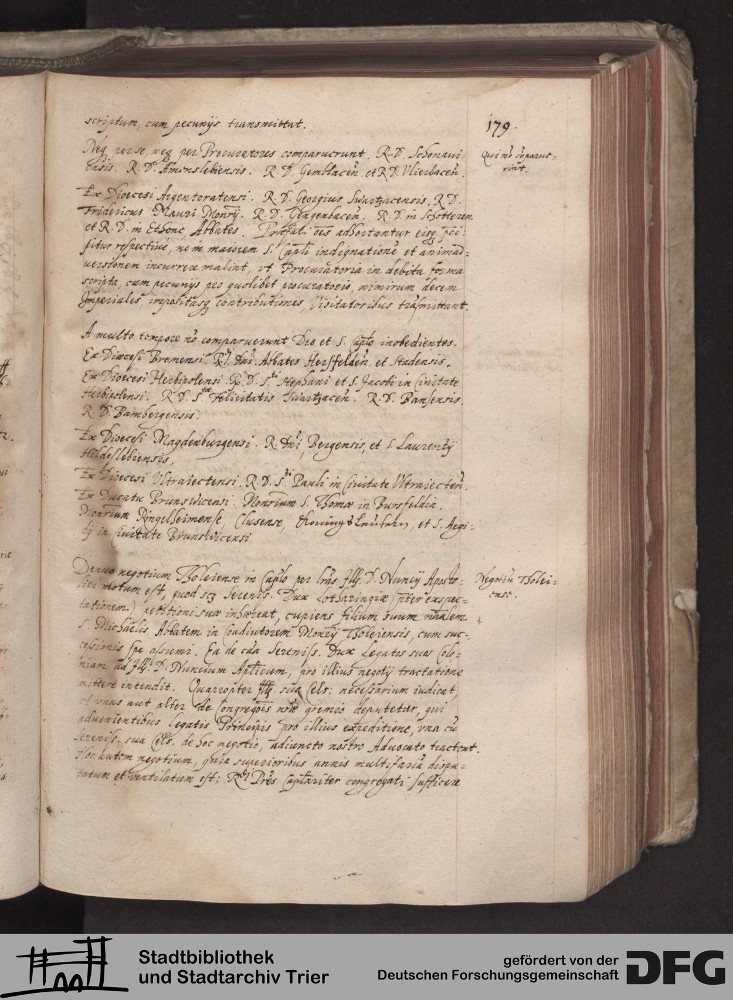 179.
scriptum, cum pecunijs transmittat.
Neq. per se, neq. per Procuratores comparuerunt. R. D. Schonaui-
ensis. R. D. Amonslebiensis. R. D. Gemblacen. et R. D. Vlierbacen.
Qui nō cōparue-
rint.
Ex Dioecesi Argentoratensi. R. D. Georgius Swartzacensis. R. D.
Fridericus Mauri Monrij. R. D. Gengenbacen. R. D. in Schutteren
et R. D. in Ethone, Abbates. Praefati oēs adhortantur eisq. pci-
pitur respectiuè, ne in maiorem S. Capli indignationē et animad-
uersionem incurrere malint, vt Procuratoria in debita forma
scripta, cum pecunijs pro quolibet procuratorio, nimirum decem
Imperiales, impositasq. contributiones, Visitatoribus trāsmittant.
A multo tempore nō comparuerunt Deo et S. Caplo inobedientes.
Ex Dioecesi Bremensi. R. dni Abbates Hersfelden. et Stadensis.
Ex Dioecesi Herbipolensi. R. D. S. Stephani et S. Jacobi in Ciuitate
Herbipolensi. R. D. S. Felicitatis Swartzacen. R. D. Bansensis.
R. D. Bambergensis.
Ex Dioecesi Magdenburgensi. R. dni Bergensis, et S. Laurentij
Hildeslebiensis.
Ex Dioecesi Vltraiectensi. R. D. S. Pauli in Ciuitate Vltraiecten.
Ex Ducatu Brunswicensi. Monrium S. Thomae in Bursfeldia.
Monrium Ringelheimense, Clusense, et S. Aegi-
dij in ciuitate Brunswicensi
Denuo negotium Tholeiense in Caplo per lrās Ill. D. Nuncij Aposto-
lici motum est, quod scz Sereniss. Dux Lotharingiae (pter exspec-
tationem) petitioni suae inhaereat, cupiens filium suum nālem
S. Michaelis Abbatem in Coadiutorem Monrij Tholeiensis, cum suc-
cessionis spe assumi. Ea de cā Sereniss. Dux Legatos suos Colo-
niam ad Ill. D. Nuncium Aplicum, pro illius negotij tractatione
mittere intendit. Quapropter Ill. sua Cels. necessarium iudicat,
vt vnus aut alter de Congregōis nrae gremio deputetur, qui
aduenientibus legatis Principis pro illius expeditione, vna cū
Sereniss. sua Cels. de hoc negotio, adiuncto nostro Aduocato tractent.
Hoc autem negotium, quia superioribus annis multifariā dispu-
tatum et ventilatum est: R. Pres Caplariter congregati sufficere
Negotiū Tholei-
ense.
Stadtbibliothek
und Stadtarchiv Trier
gefördert von der
Deutschen Forschungsgemeinschaft
DFG